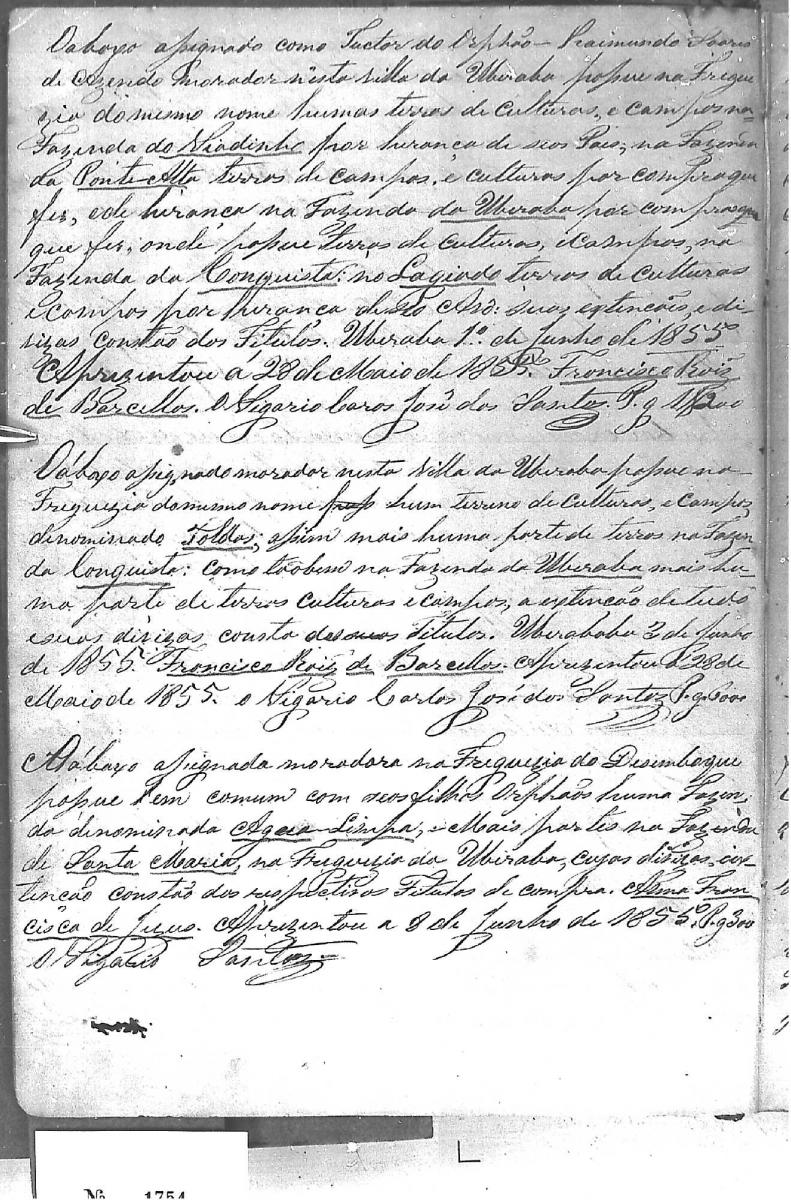 O abaxo assignado como Tuctor do Orphão Raimundo Soares
de Azendo morador nesta Villa da Uberaba possue na Fregue
zia do mesmo nome humas terras de culturas, e campos na
Fazenda do Viadinho por herança de seos Pais, na Fazenda
da Ponte Alta terras de campos, e culturas por compra que
fes, e de herança na Fazenda da Uberaba por compras
que fes, onde possue terras de culturas, e campos, na
Fazenda da Conquista: no Lagiado terras de culturas
e campos por herança de seo Avo: suas extenções, e di
vizas constão dos Titulos. Uberaba 1º de Junho de 1855
Aprezentou á 28 de Maio de 1855. Francisco Roiz
de Barcellos. O Vigario Carlos José dos Santos. P. g 1200
O ábaxo assignado morador nesta Villa da Uberaba possue na
Freguezia do mesmo nome hum terreno de culturas, e campos,
denominado Toldas, assim mais huma parte de terras na Fazen
da Conquista: como tãobem na Fazenda da Uberaba mais hu
ma parte de terras culturas e campos, a extenção de tudo
e suas divizas consta de seus Titulos. Uberababa 2 de Junho
de 1855. Francisco Roiz de Barcellos. Aprezentou á 28 de
Maio de 1855. O Vigario Carlos José dos Santos P. g.
A abaxo assignada moradora na Freguezia do Desemboque
possue em comum com seos filhos Orphãos huma Fazen
da denominada Agua Limpa, e Mais partes na Fazenda
de Santa Maria, na Freguezia da Uberaba, cujas divizas, ex
tenção constão dos respectivos Titulos de compra. Anna Fran
cisca de Jezus. Aprezentou a 8 de Junho de 1855. P. g 300
O Vigario Santos
Nº 1754